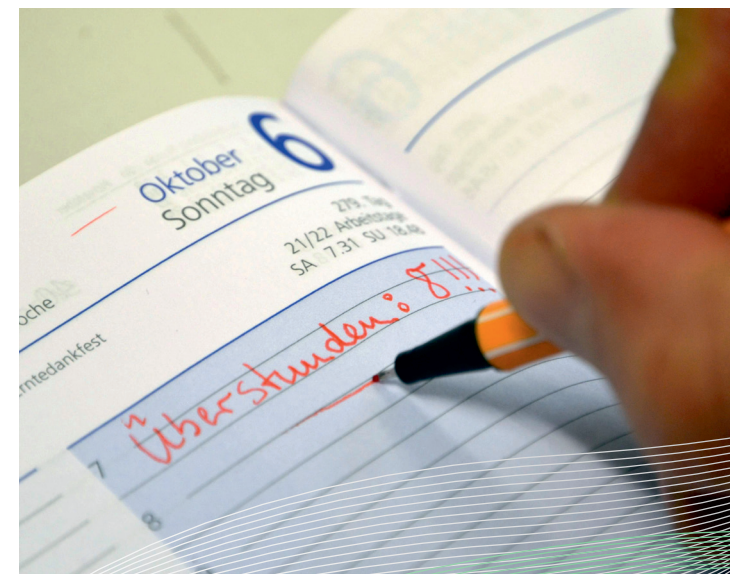 6
Oktober
Sonntag
279. Tag
21/22 Arbeitstage
SA 7.31 SU 18.48
oche
rntedankfest
Überstunden: 8!!!
7
8